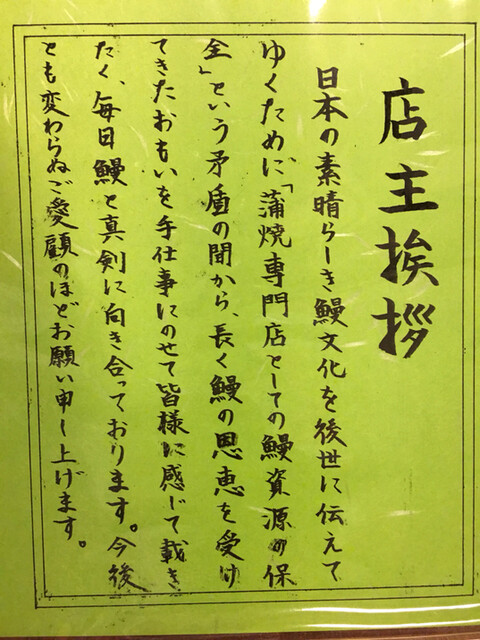 店主挨拶
日本の素晴らしき鰻文化を後世に伝えて
ゆくために、「蒲焼専門店としての鰻資源の保
全」という矛盾の間から、長く鰻の恩恵を受け
てきたおもいを手仕事にのせて皆様に感じて載き
たく、毎日鰻と真剣に向き合っております。今後
とも変わらぬご愛顧のほどお願い申し上げます。